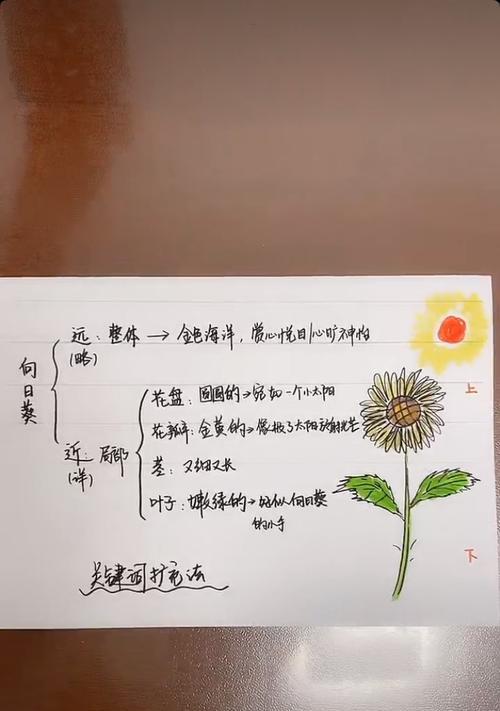 向日葵
远：整体 → 金色海洋，赏心悦目/心旷神怡
(略)
近：局部
(详)
花盘：圆圆的→宛如一个小太阳
花瓣：金黄的→像极了太阳放射光芒
茎：又细又长
叶子：嫩绿的→好似向日葵
的小手
上
下
关键词扩充法